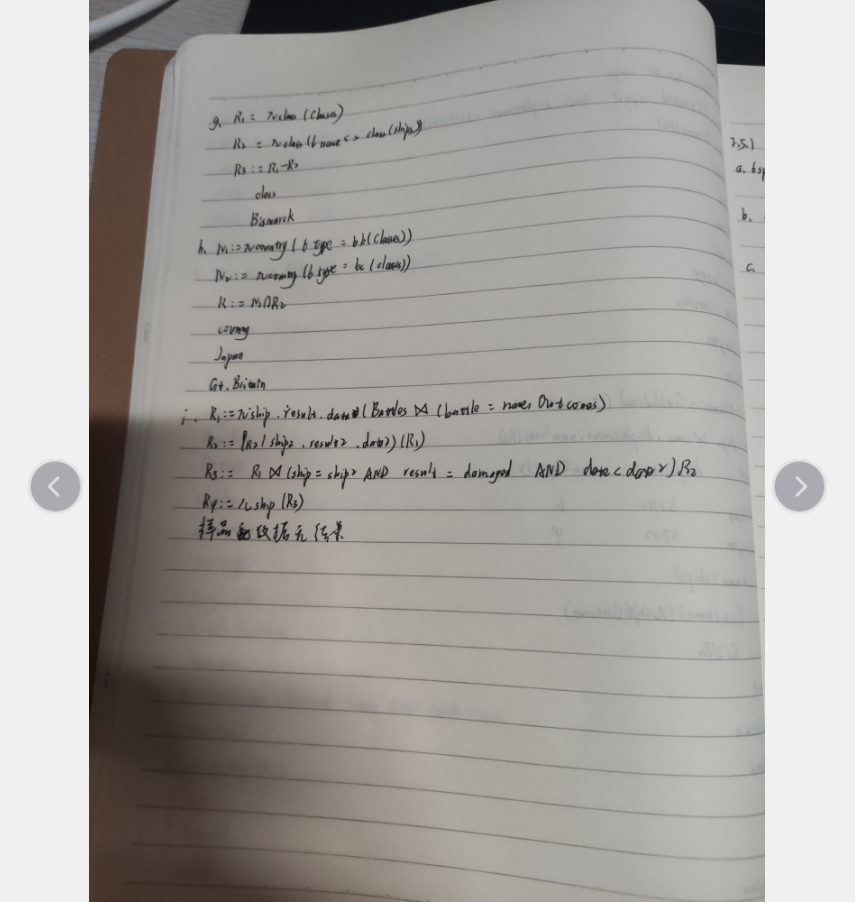 g. R₁ := πclass (Classes)
R₂ := πclass (σ name <> class (ships))
R₃ := R₁-R₂
class
Bismarck
h. R₁ := πcountry (σ type = bb (Classes))
R₂ := πcountry (σ type = bc (classes))
R := R₁∩R₂
country
Japan
Gt. Britain
i. R₁ := πship, result, date (Battles ⋈ (battle = name) Outcomes)
R₂ := ρR₂ (ship2, result2, date2) (R₁)
R₃ := R₁ ⋈ (ship = ship2 AND result = damaged AND date < date2) R₂
R₄ := πship (R₃)
样品 数据无结果
2.5.1
a.
b.
c.